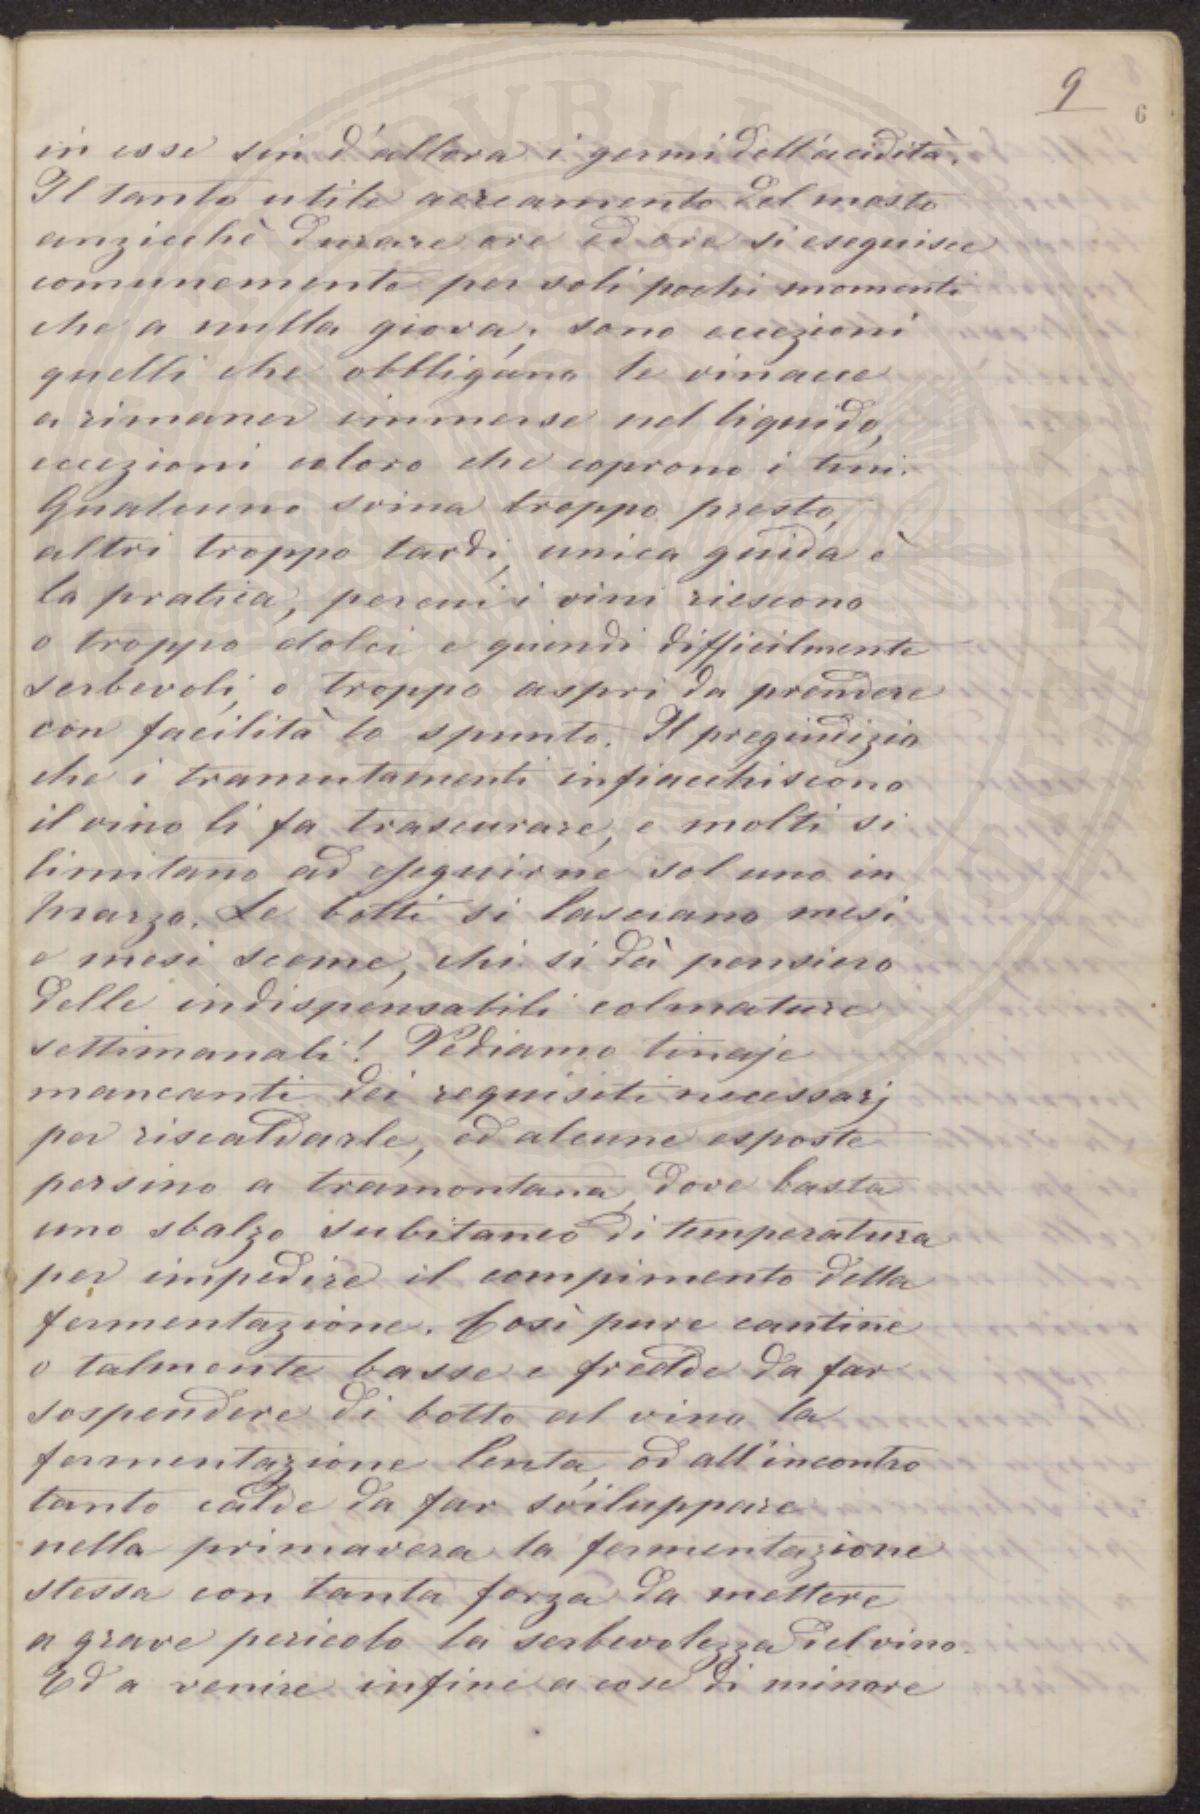 9
6
in esse sin d'allora i germi dell'acidità.
Il tanto utile aereamento del mosto
anzicchè durare ore ed ore si eseguisce
comunemente per soli pochi momenti
che a nulla giova; sono eccezioni
quelli che obbligano le vinacce
a rimaner immerse nel liquido,
eccezioni coloro che coprono i tini.
Qualcuno svina troppo presto,
altri troppo tardi, unica guida è
la pratica, percui i vini riescono
o troppo dolci e quindi difficilmente
serbevoli, o troppo aspri da prendere
con facilità lo spunto. Il pregiudizio
che i tramutamenti infiacchiscono
il vino li fa trascurare, e molti si
limitano ad eseguirne sol uno in
Marzo. Le botti si lasciano mesi
e mesi sceme, chi si dà pensiero
delle indispensabili colmature
settimanali! Vediamo tinaje
mancanti dei requisiti necessarj
per riscaldarle, ed alcune esposte
persino a tramontana, dove basta
uno sbalzo subitaneo di temperatura
per impedire il compimento della
fermentazione. Così pure cantine
o talmente basse e fredde da far
sospendere di botto al vino la
fermentazione lenta, od all'incontro
tanto calde da far sviluppare
nella primavera la fermentazione
stessa con tanta forza da mettere
a grave pericolo la serbevolezza del vino.
Ed a venire infine a cose di minore